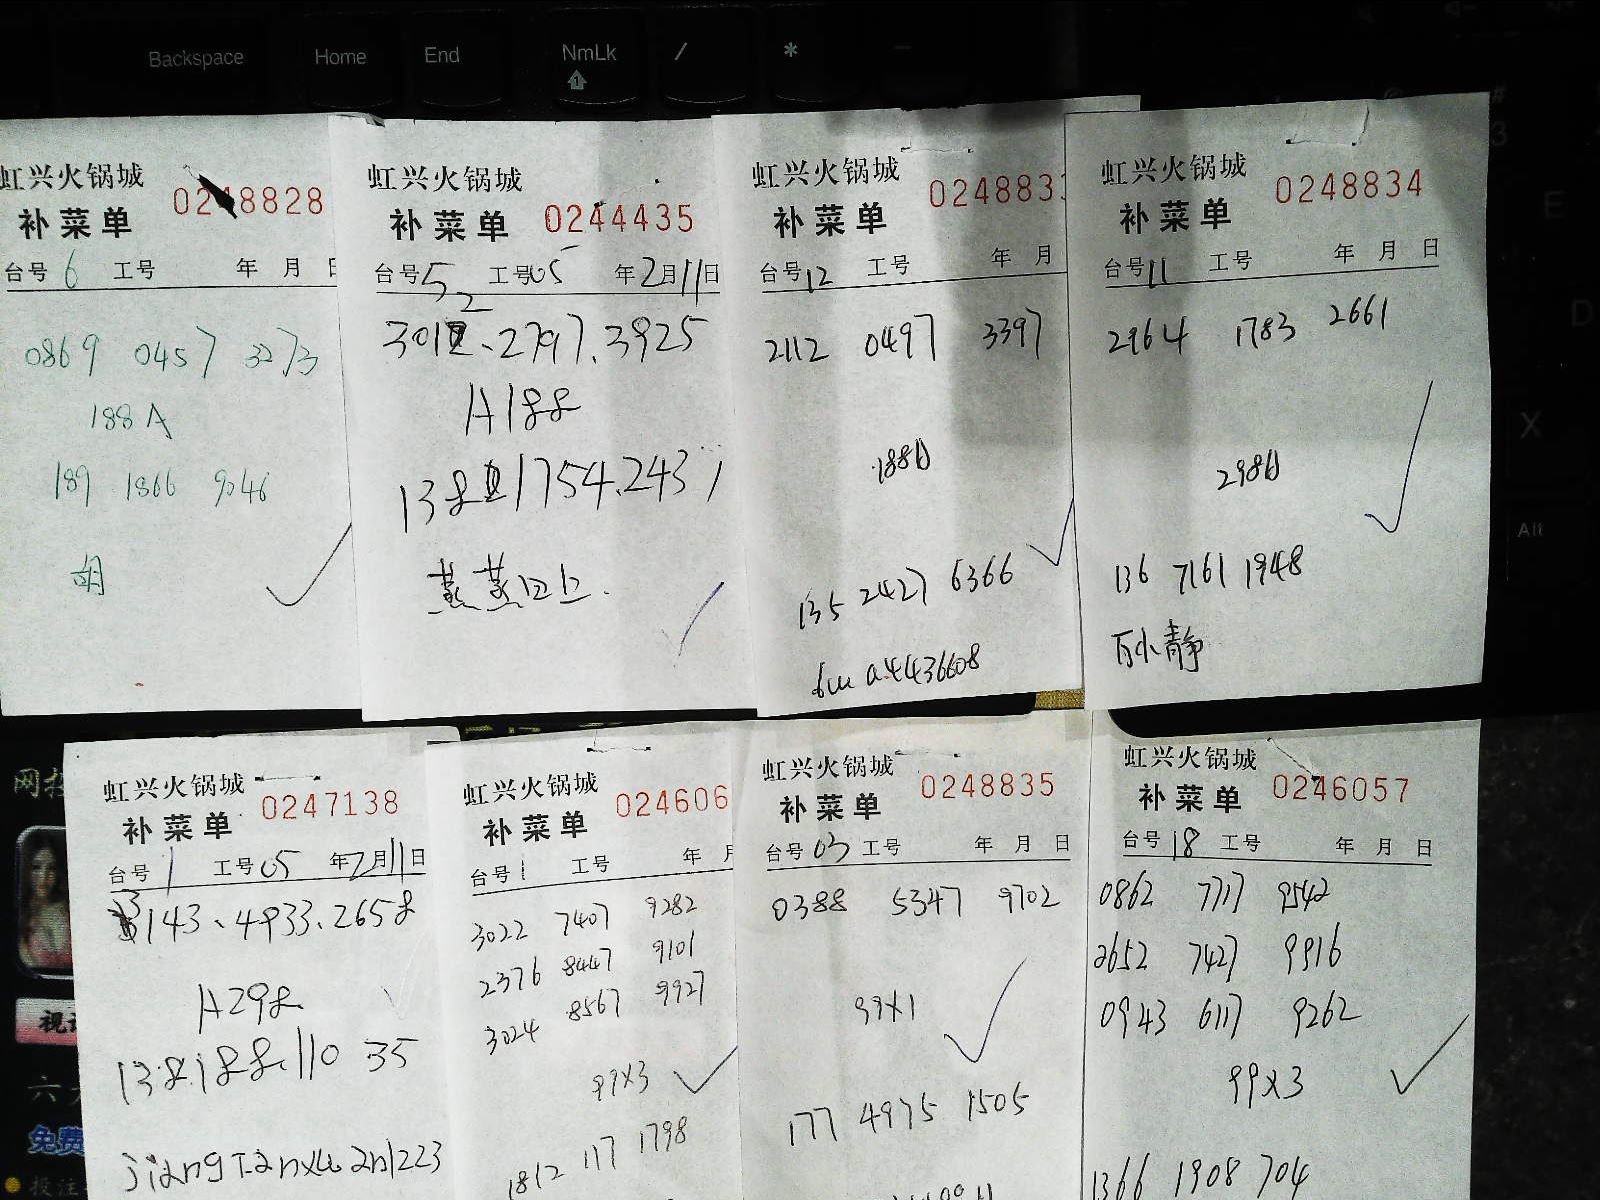 Backspace Home End NmLk / *
虹兴火锅城
补菜单 0248828
台号 6 工号 年 月 日
0869 0457 3273
188 A
189 1866 9046
胡
虹兴火锅城
补菜单 0244435
台号 5 工号 05 年 2月 11日
2797. 3925
A188
1754. 2437
蒸蒸日上.
虹兴火锅城
补菜单 024883
台号 12 工号 年 月
2112 0497 3397
188A
135 2427 6366
a.4436608
虹兴火锅城
补菜单 0248834
台号 11 工号 年 月 日
2964 1783 2661
298A
136 7161 1948
小静
E
D
X
Alt
虹兴火锅城
补菜单 0247138
台号 1 工号 05 年 2月 11日
3143、4933、2658
A298
138.188.110 35
jiangtanxuan1223
虹兴火锅城
补菜单 024606
台号 1 工号 年 月
3022 7407 9282
2376 8447 9101
3024 8567 9927
99X3
1812 117 1798
虹兴火锅城
补菜单 0248835
台号 03 工号 年 月 日
0388 5347 9702
99X1
177 4975 1505
虹兴火锅城
补菜单 0246057
台号 18 工号 年 月 日
0862 7717 9542
2652 7427 9916
0943 6117 9262
99X3
1366 1908 704
免费